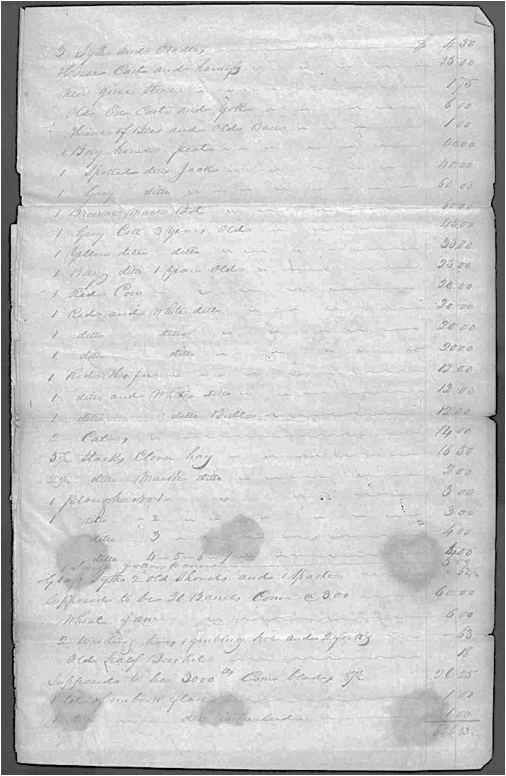 3 Sythe and Cradles $ 4.50
Horse Cart and harnys 25.00
new grine Stone 1.75
Old Oxe Cart and Yok 6.00
Hive of Bees and Old Bares 1.00
1 Bay horse pest 40.00
1 Spotted ditto Jack 40.00
1 Gray ditto 60.00
1 Browne Mare Bet 60.00
1 Gray Colt 3 years Old 45.00
1 Yellow ditto ditto 35.00
1 Bay ditto 1 Year Old 25.00
1 Red Cow 20.00
1 Red and White ditto 20.00
1 ditto ditto 20.00
1 ditto ditto 20.00
1 Red Heifer 12.00
1 ditto and White ditto 12.00
1 ditto ditto Bull 12.00
2 Calves 14.00
Stacks Clover hay 16.50
ditto Marsh ditto 2.00
1 Plough No 1 3.00
1 ditto " 2 3.00
ditto 3 4.00
ditto 4-5-6-7
1
Grass Sythe 2 old Shovels and 1 Spade
Supposed to be 20 Barrels Corn @ 3.00 60.00
Wheat fan 5.00
2 Weeding hoes 1 grubing hoe and 2 forks 63
Old half Bushel 18
Supposed to be 3000 lbs Corn blades 26.25
1 lot of unbroke flax 1.00
1 ditto ditto 1.00